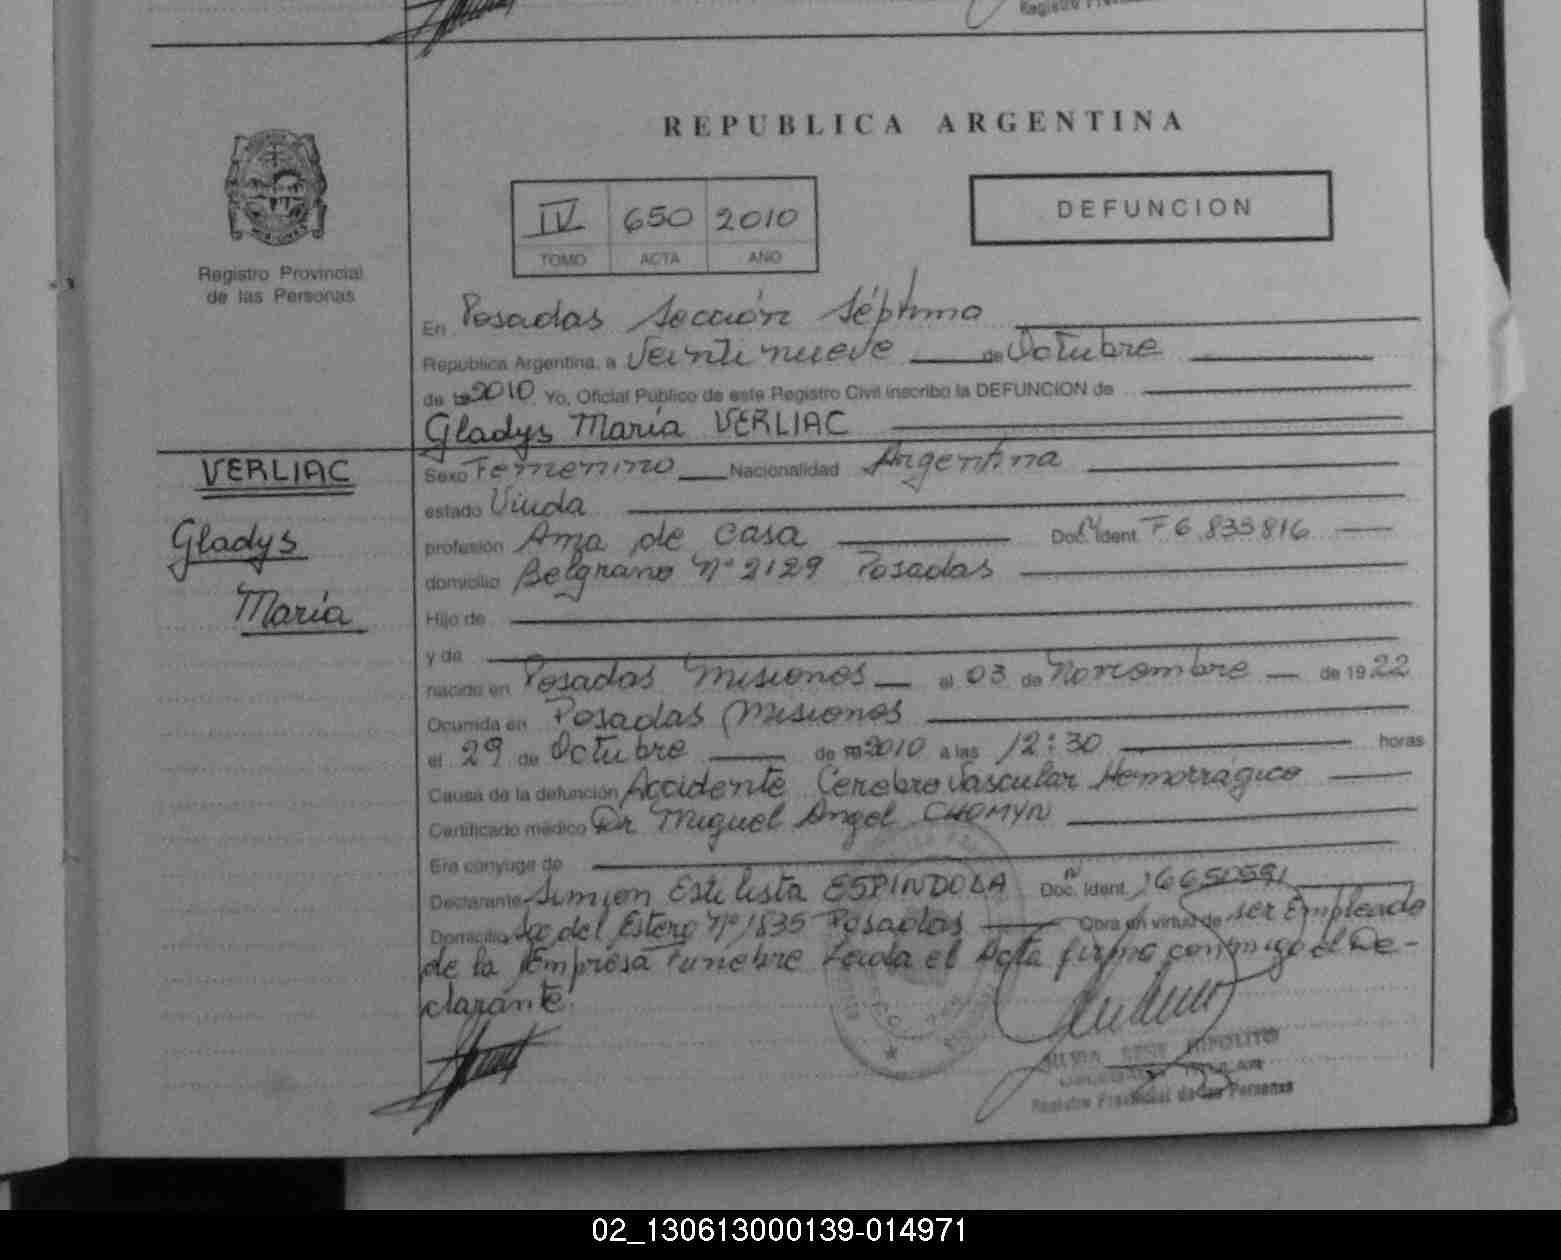 Registro
REPUBLICA ARGENTINA
IV 650 2010
TOMO ACTA AÑO
DEFUNCION
Registro Provincial
de las Personas
En Posadas Sección Séptima
Republica Argentina, a Veintinueve de Octubre
de 2010 Yo, Oficial Público de este Registro Civil inscribo la DEFUNCION de
Gladys María VERLIAC
VERLIAC
Gladys
María
Sexo Femenino Nacionalidad Argentina
estado Viuda
profesión Ama de casa Doc. Ident. F 6.833816
domicilio Belgrano Nº 2129 Posadas
Hijo de
y de
nacido en Posadas Misiones el 03 de Noviembre de 1922
Ocurrida en Posadas Misiones
el 29 de Octubre de 2010 a las 12:30 horas
Causa de la defunción Accidente Cerebro Vascular Hemorrágico
Certificado médico Dr Miguel Angel CHOMYN
Era conyuge de
Declarante Estilista ESPINDOLA Doc. Ident. 16650591
Domicilio Sgo del Estero Nº 1835 Posadas Obra en virtud de ser Empleado
de la Empresa Funebre Leida el Acta firma conmigo el De-
clarante.
HIPOLITO
Registro Provincial de las Personas
02_130613000139-014971